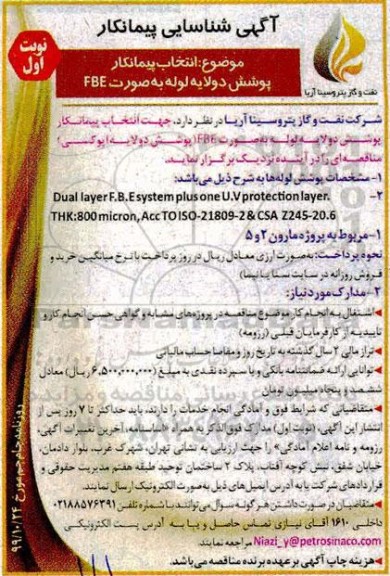 آگهی شناسایی پیمانکار
نوبت اول
موضوع: انتخاب پیمانکار
پوشش دولایه لوله به صورت FBE
نفت و گاز پتروسینا آریا
شرکت نفت و گاز پتروسینا آریا در نظر دارد، جهت انتخاب پیمانکار
پوشش دولایه لوله به صورت FBE (پوشش دولایه اپوکسی)
مناقصه‌ای را در آینده نزدیک برگزار نماید.
۱- مشخصات پوشش لوله‌ها به شرح ذیل می‌باشد:
۲-
Dual layer F.B.E system plus one U.V protection layer.
THK:800 micron, Acc TO ISO-21809-2 & CSA Z245-20.6
۱- مربوط به پروژه مارون ۲ و ۵
نحوه پرداخت: به صورت ارزی معادل ریال در روز پرداخت با نرخ میانگین خرید و
فروش روزانه در سایت سنا یا نیما)
۲- مدارک مورد نیاز:
اشتغال به انجام کار موضوع مناقصه در پروژه‌های مشابه و گواهی حسن انجام کار و
تاییدیه از کارفرمایان قبلی (رزومه)
تراز مالی ۲ سال گذشته به تاریخ روز و مفاصا حساب مالیاتی
توانایی ارائه ضمانتنامه بانکی و یا سپرده نقدی به مبلغ (۶,۵۰۰,۰۰۰,۰۰۰ ریال) معادل
ششصد و پنجاه میلیون تومان
متقاضیانی که شرایط فوق و آمادگی انجام خدمات را دارند، باید حداکثر تا ۷ روز پس از
انتشار این آگهی، (نوبت اول) مدارک فوق الذکر به همراه «اساسنامه، آخرین تغییرات آگهی،
رزومه و نامه اعلام آمادگی» را جهت ارزیابی به نشانی تهران، شهرک غرب، بلوار دادمان،
خیابان شفق، نبش کوچه آفتاب، پلاک ۲ ساختمان توحید طبقه هفتم مدیریت حقوقی و
قراردادهای شرکت یا به آدرس ایمیل‌های ذیل به صورت الکترونیک ارسال نمایند.
متقاضیان در صورت داشتن هرگونه سوال می‌توانند با شماره تلفن ۰۲۱۸۸۵۷۶۳۹۱
داخلی ۱۶۱۰ آقای نیازی تماس حاصل و یا به آدرس پست الکترونیکی
Niazi_y@petrosinaco.com مراجعه نمایند.
هزینه چاپ آگهی بر عهده برنده مناقصه می‌باشد.
روزنامه جام جم مورخ ۹۹/۱۰/۲۴